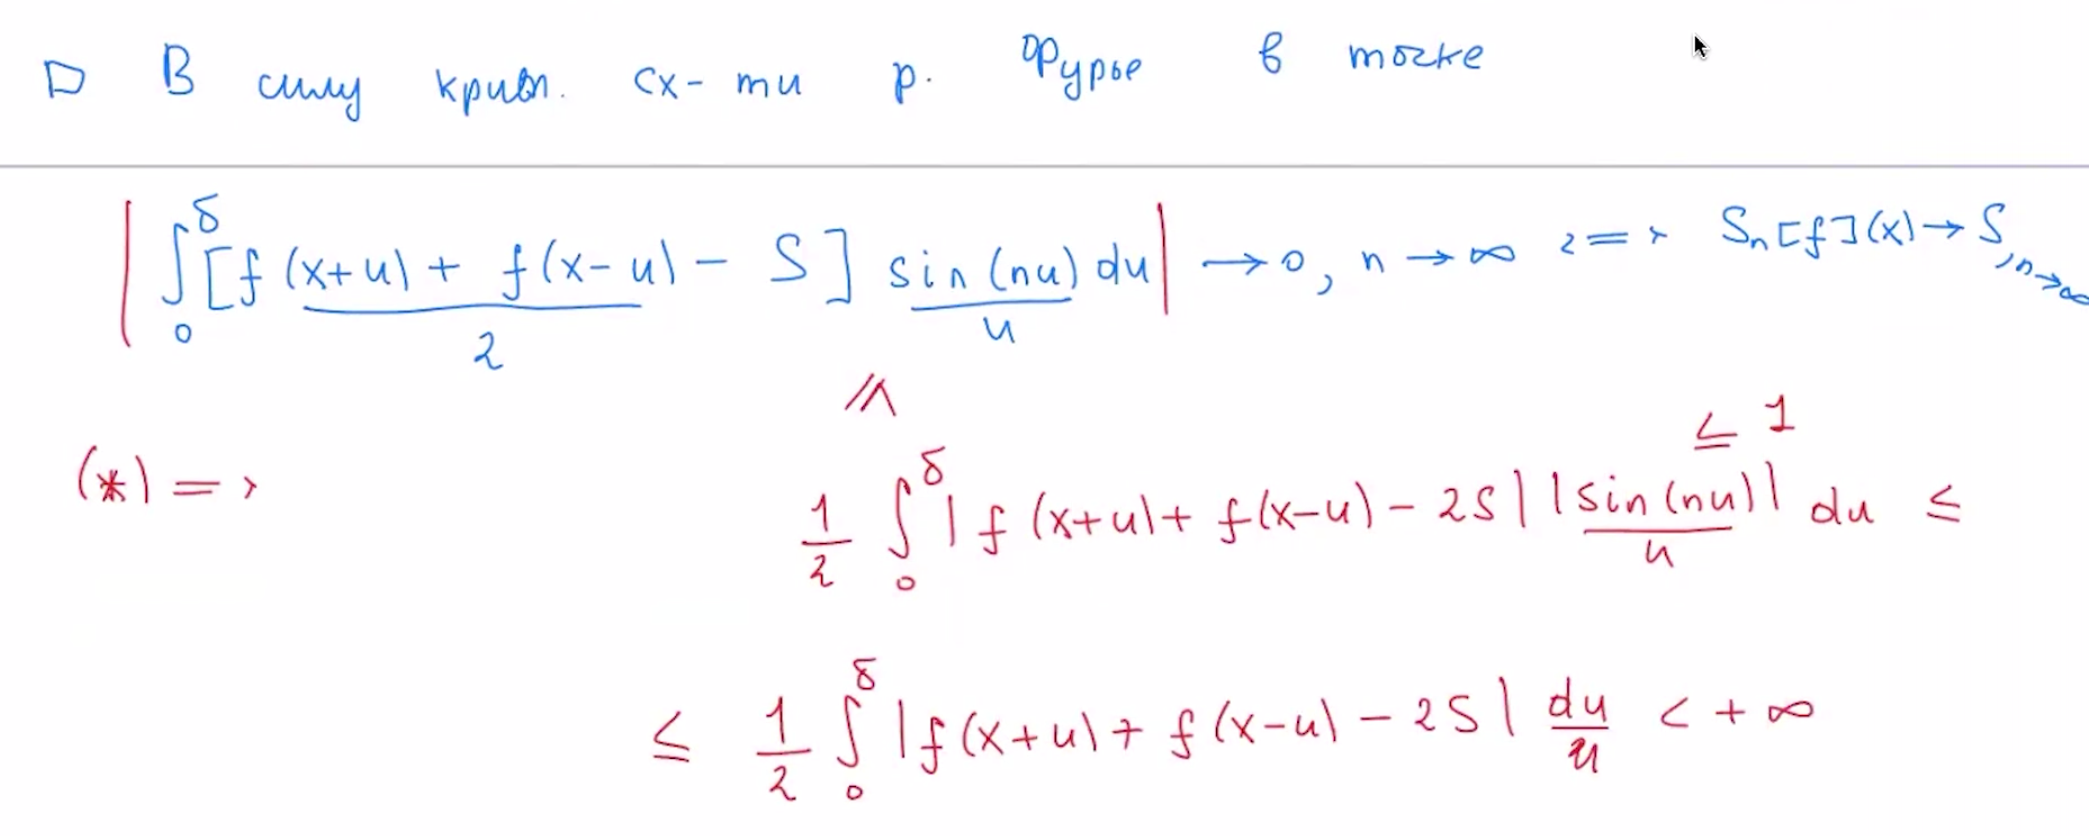 □ В силу крит. сх-ти р. Фурье в точке
| ∫₀^δ [ (f(x+u) + f(x-u))/2 - S ] sin(nu)/u du | → 0, n → ∞ <=> Sₙ[f](x) → S, n→∞
≤
≤ 1
(*) => 1/2 ∫₀^δ |f(x+u) + f(x-u) - 2S| |sin(nu)|/u du ≤
≤ 1/2 ∫₀^δ |f(x+u) + f(x-u) - 2S| du/u < +∞